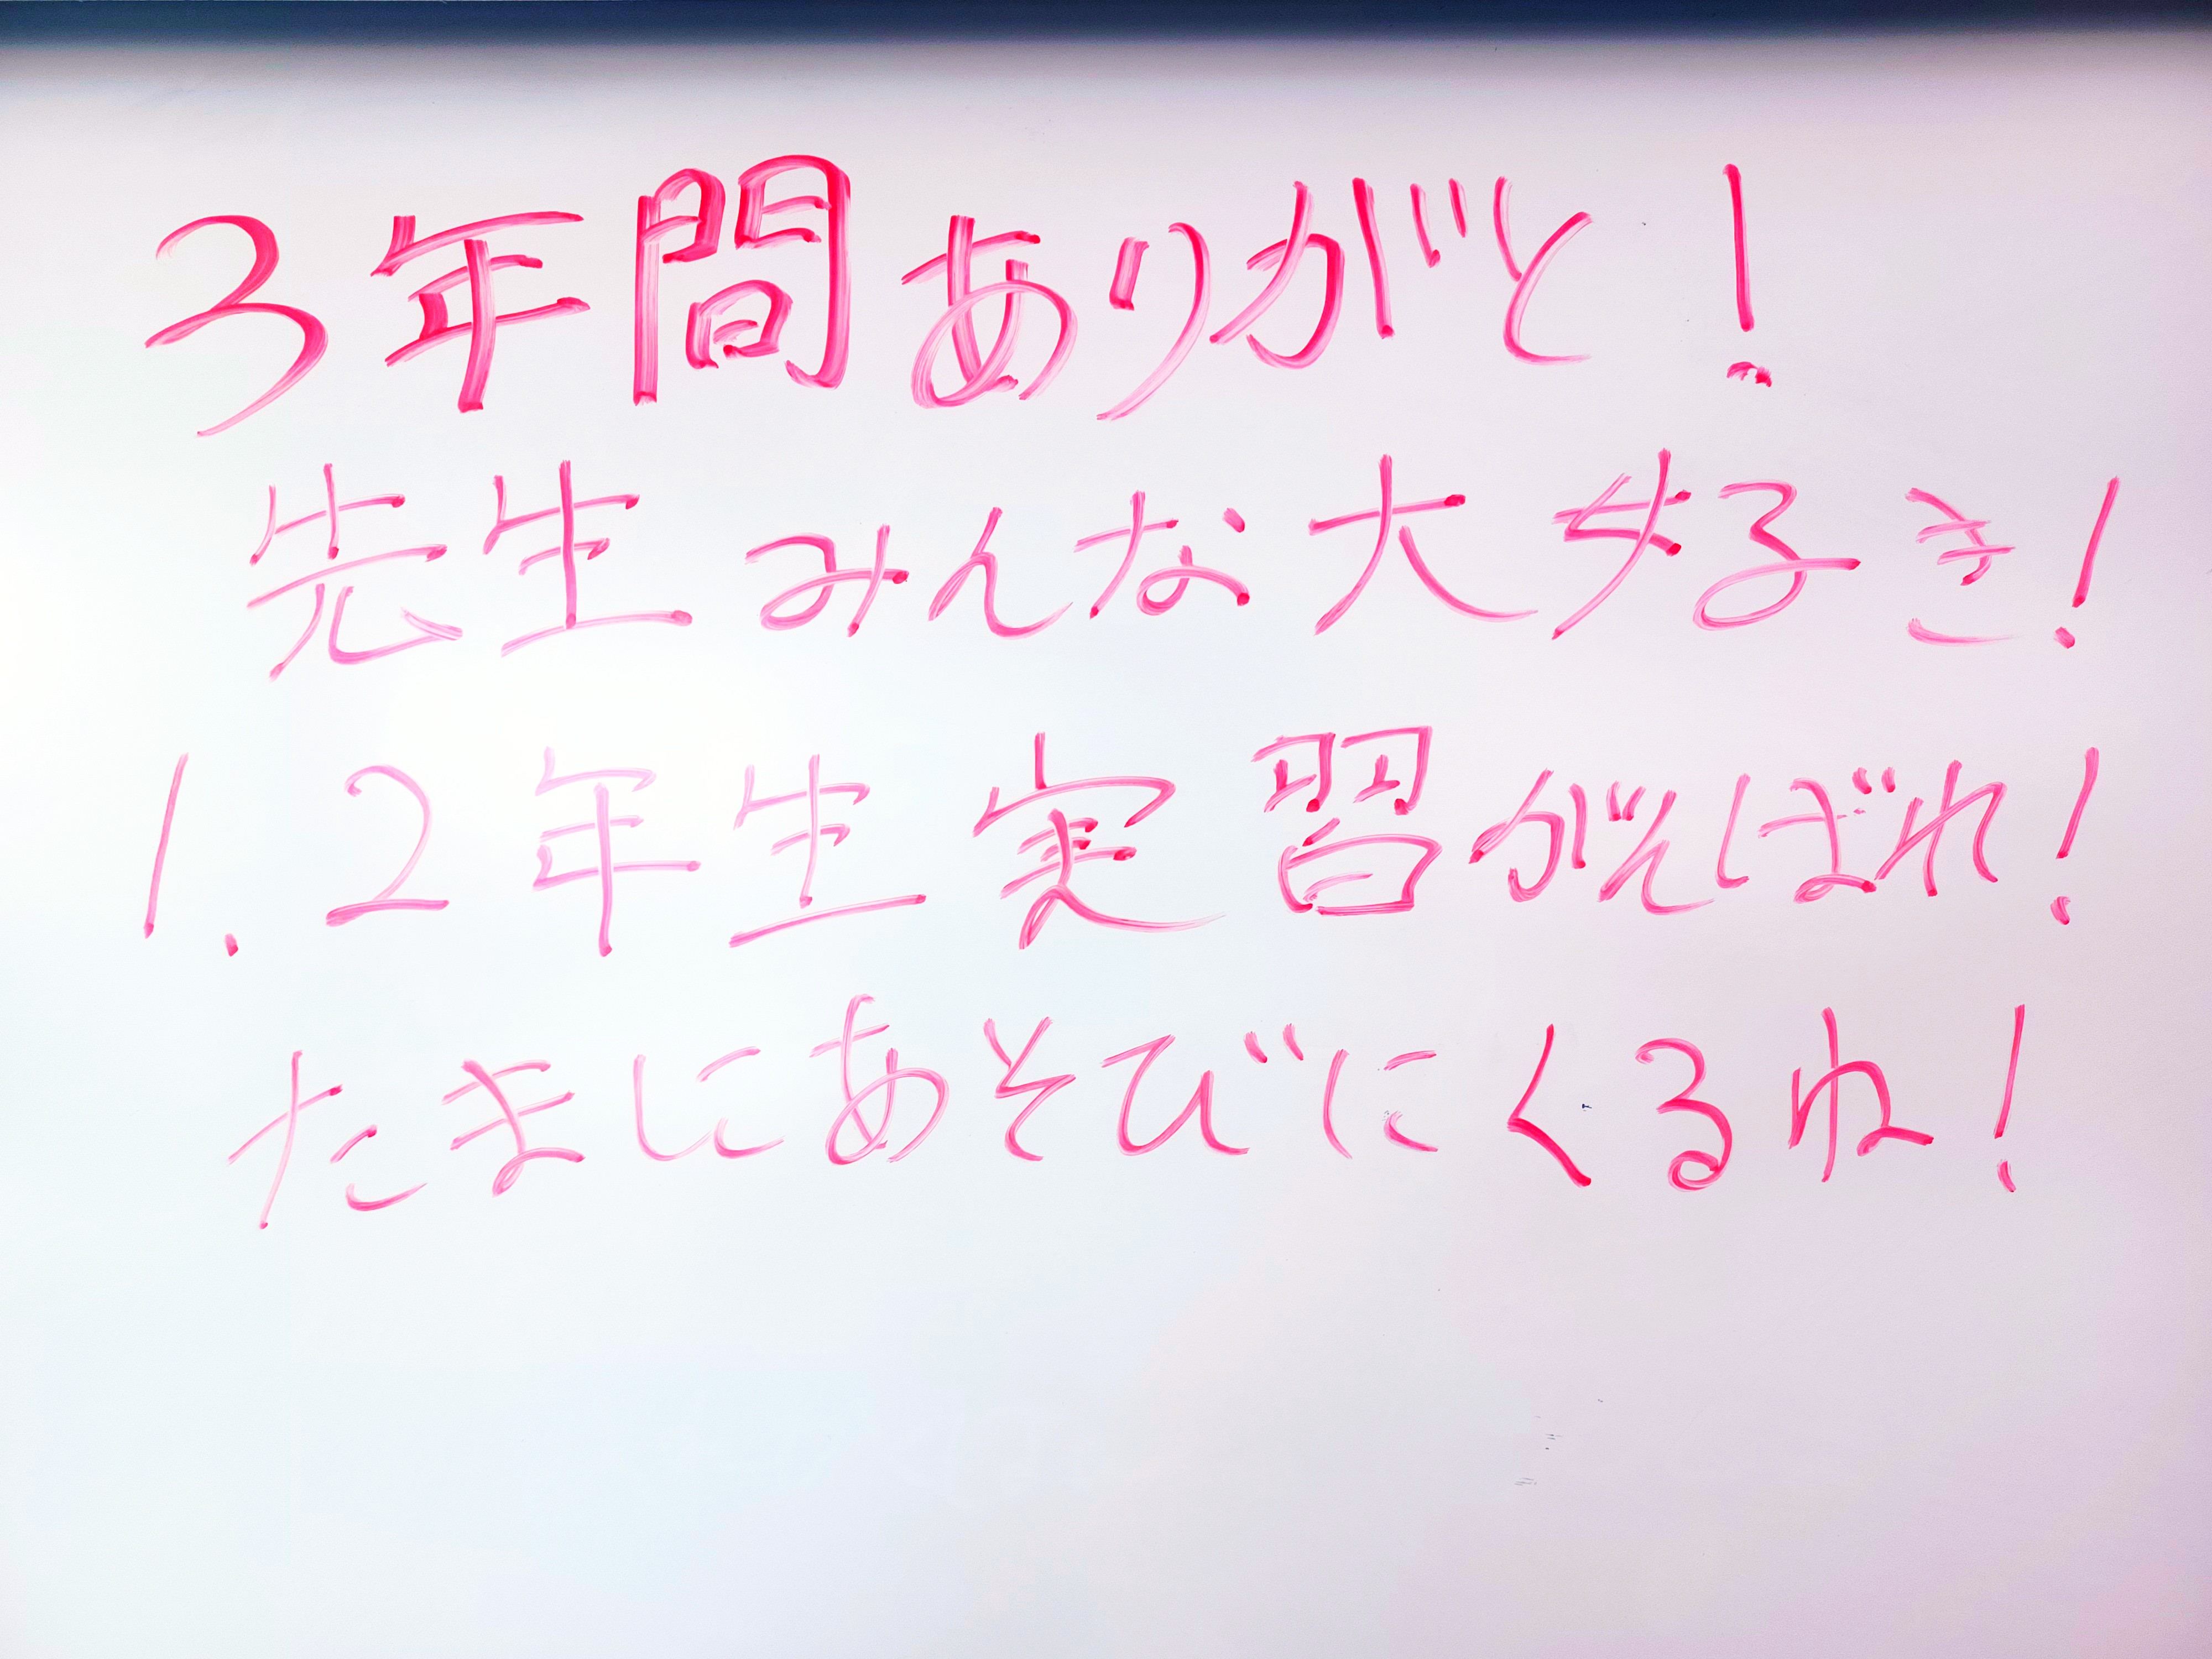 3年間ありがと!
先生みんな大好き!
1.2年生実習がんばれ!
たまにあそびにくるね!